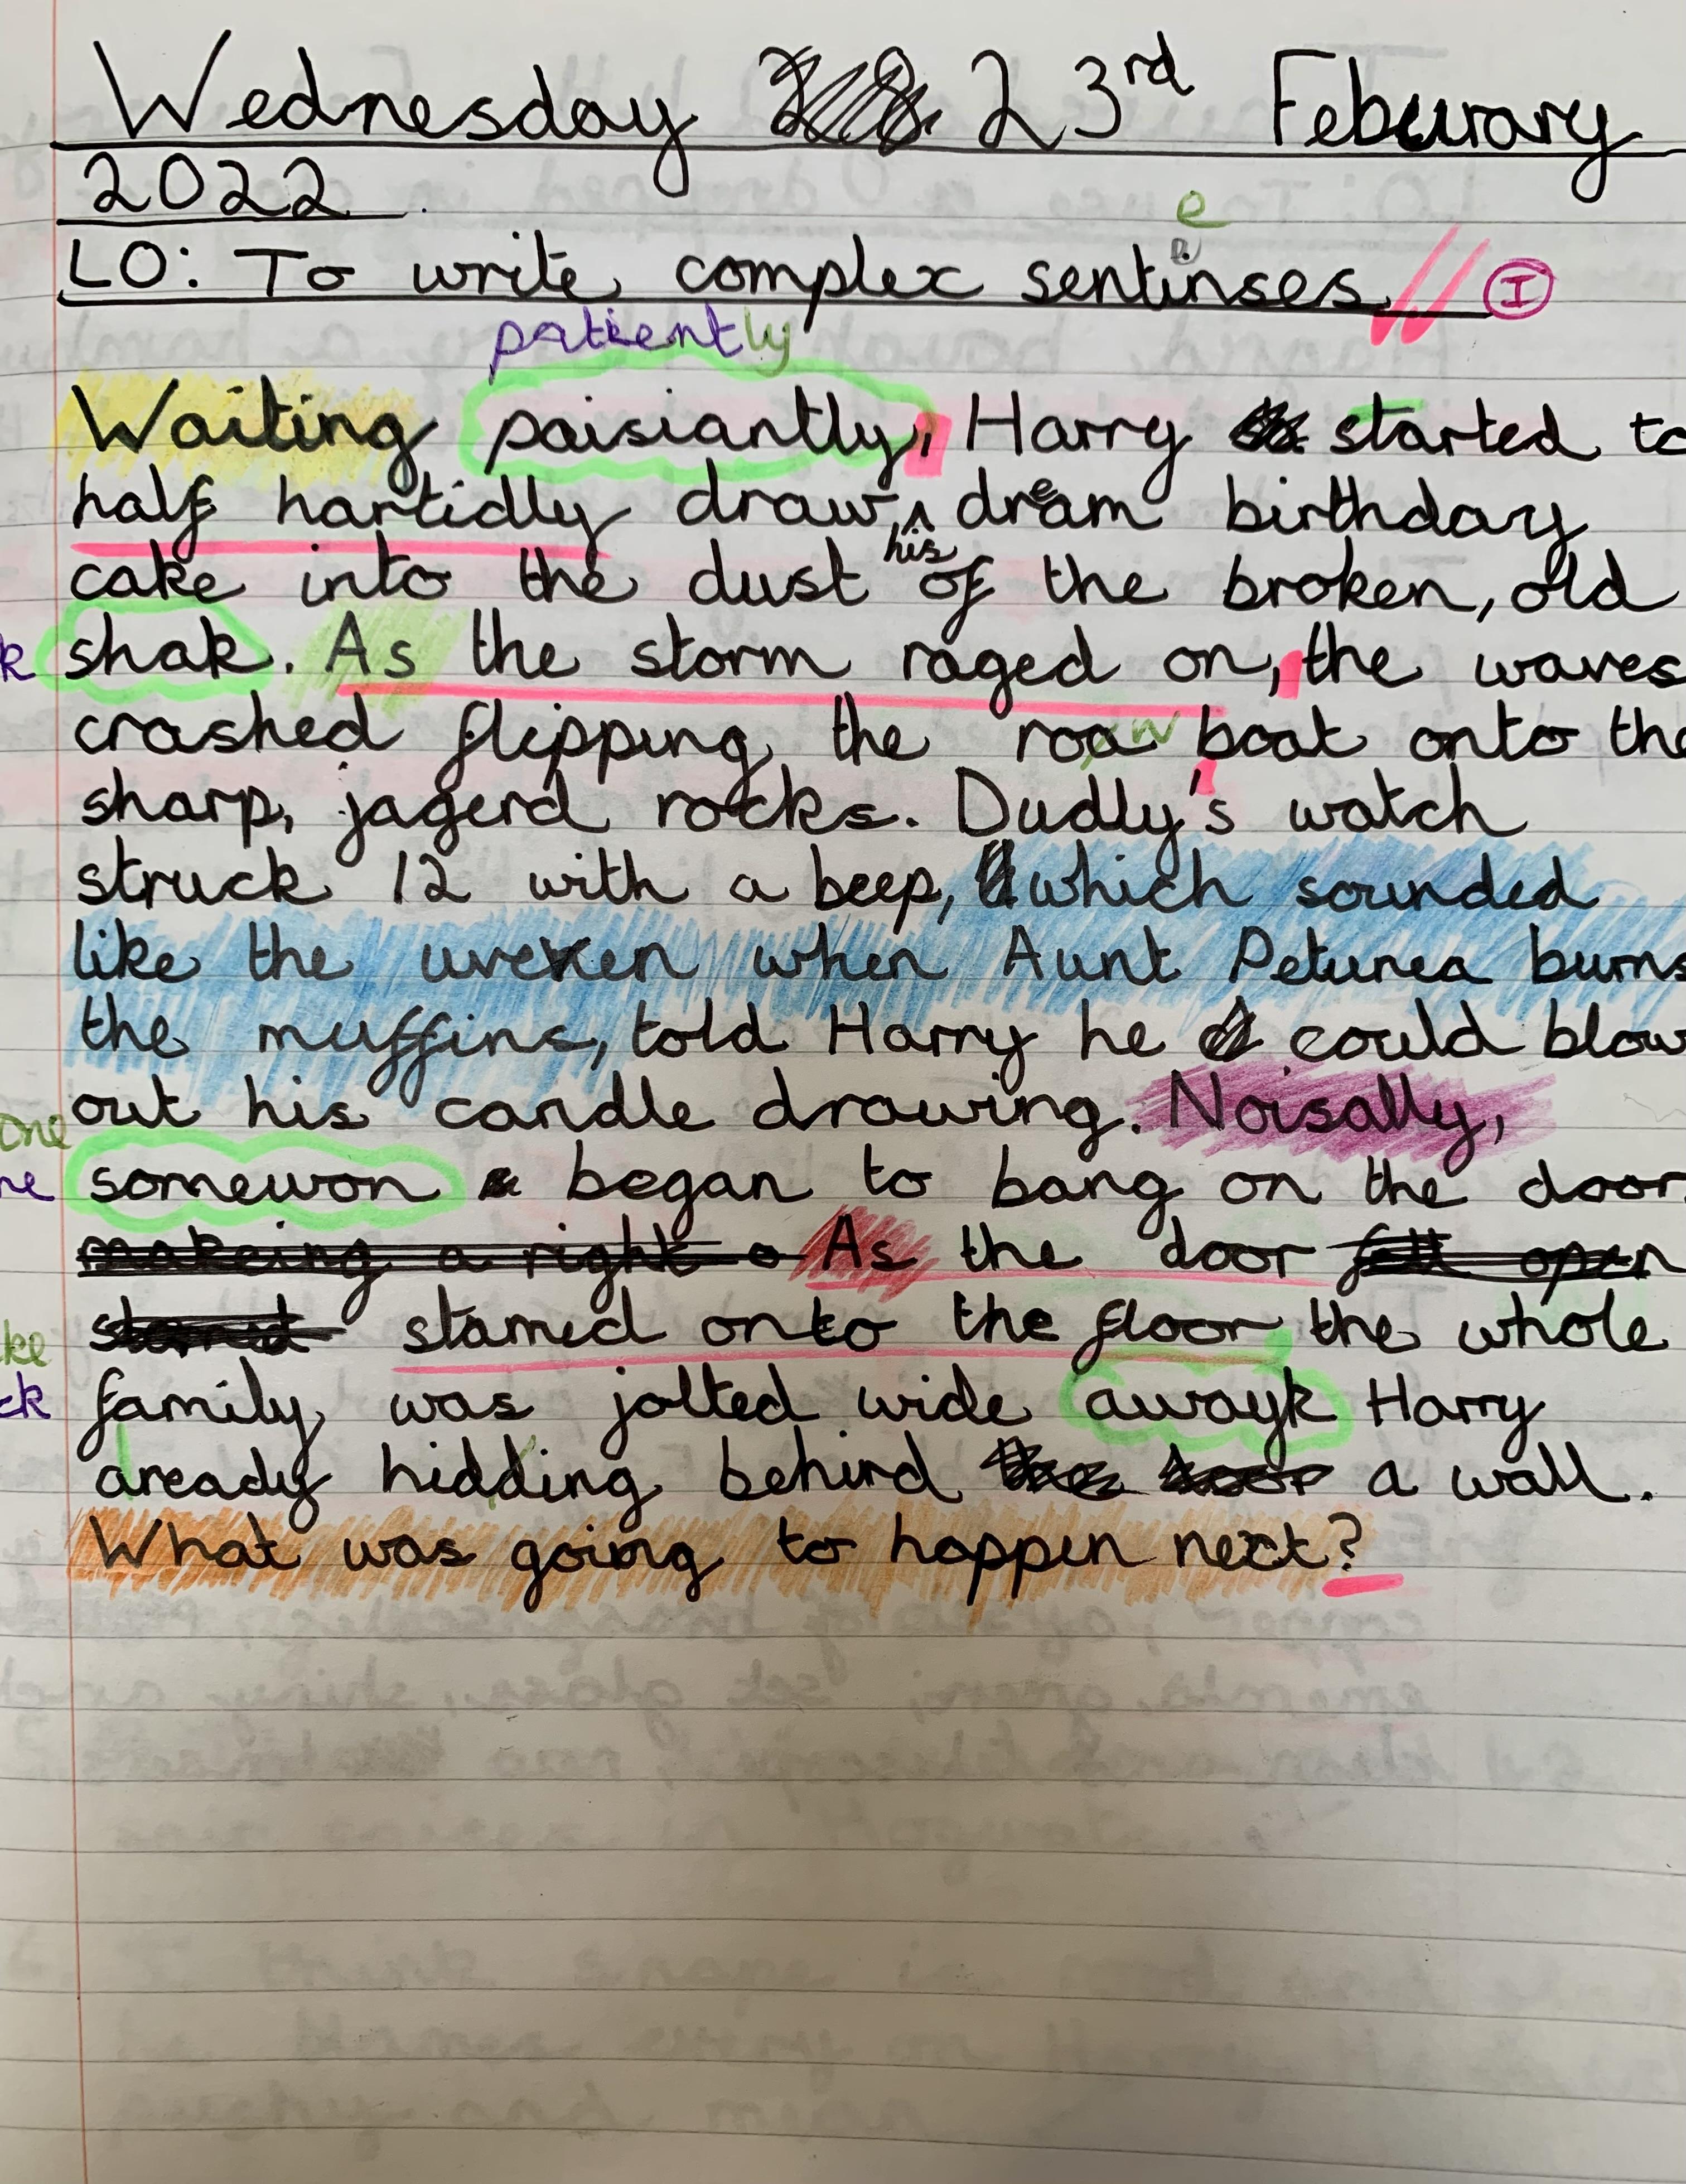 Wednesday 23rd Feburary
2022
e
LO: To write complex sentinses I
patiently
Waiting paisiantly, Harry started to
half hartidly draw, ^ dream birthday
his
cake into the dust of the broken, old
k shak. As the storm raged on, the waves
crashed flipping the row boat onto the
sharp, jagerd rocks. Dudly's watch
struck 12 with a beep, which sounded
like the uveken when Aunt Petunea burns
the muffins, told Harry he could blow
out his candle drawing. Noisally,
one
ne somewon began to bang on the door.
makeing a right As the door fell open
stamed onto the floor the whole
ke
ck family was jolted wide awayk Harry
aready hidding behind a wall.
What was going to happen next?